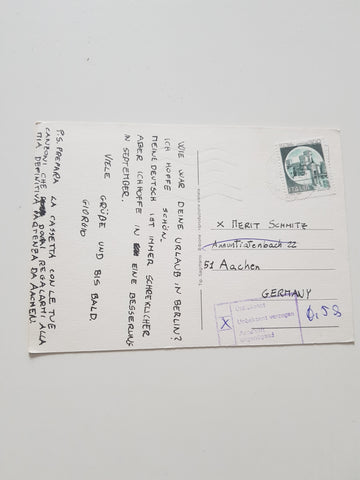 WIE WAR DEINE URLAUB IN BERLIN?
ICH HOFFE SCHÖN.
MEINE DEUTSCH IST IMMER SCHREKLICHER
ABER ICH HOFFE IN EINE BESSERUNG
IN SEPTEMBER.
VIELE GRÜßE UND BIS BALD.
GIORGIO
P.S. PREPARA LA CASSETTA CON LE TUE
CANZONI CHE DOVRAI REGALARMI ALLA
MIA DEFINITIVA PARTENZA DA AACHEN.
ITALIA
X MERIT SCHMITZ
Annuntiatenbach 22
51 Aachen
GERMANY
X Unbekannt verzogen